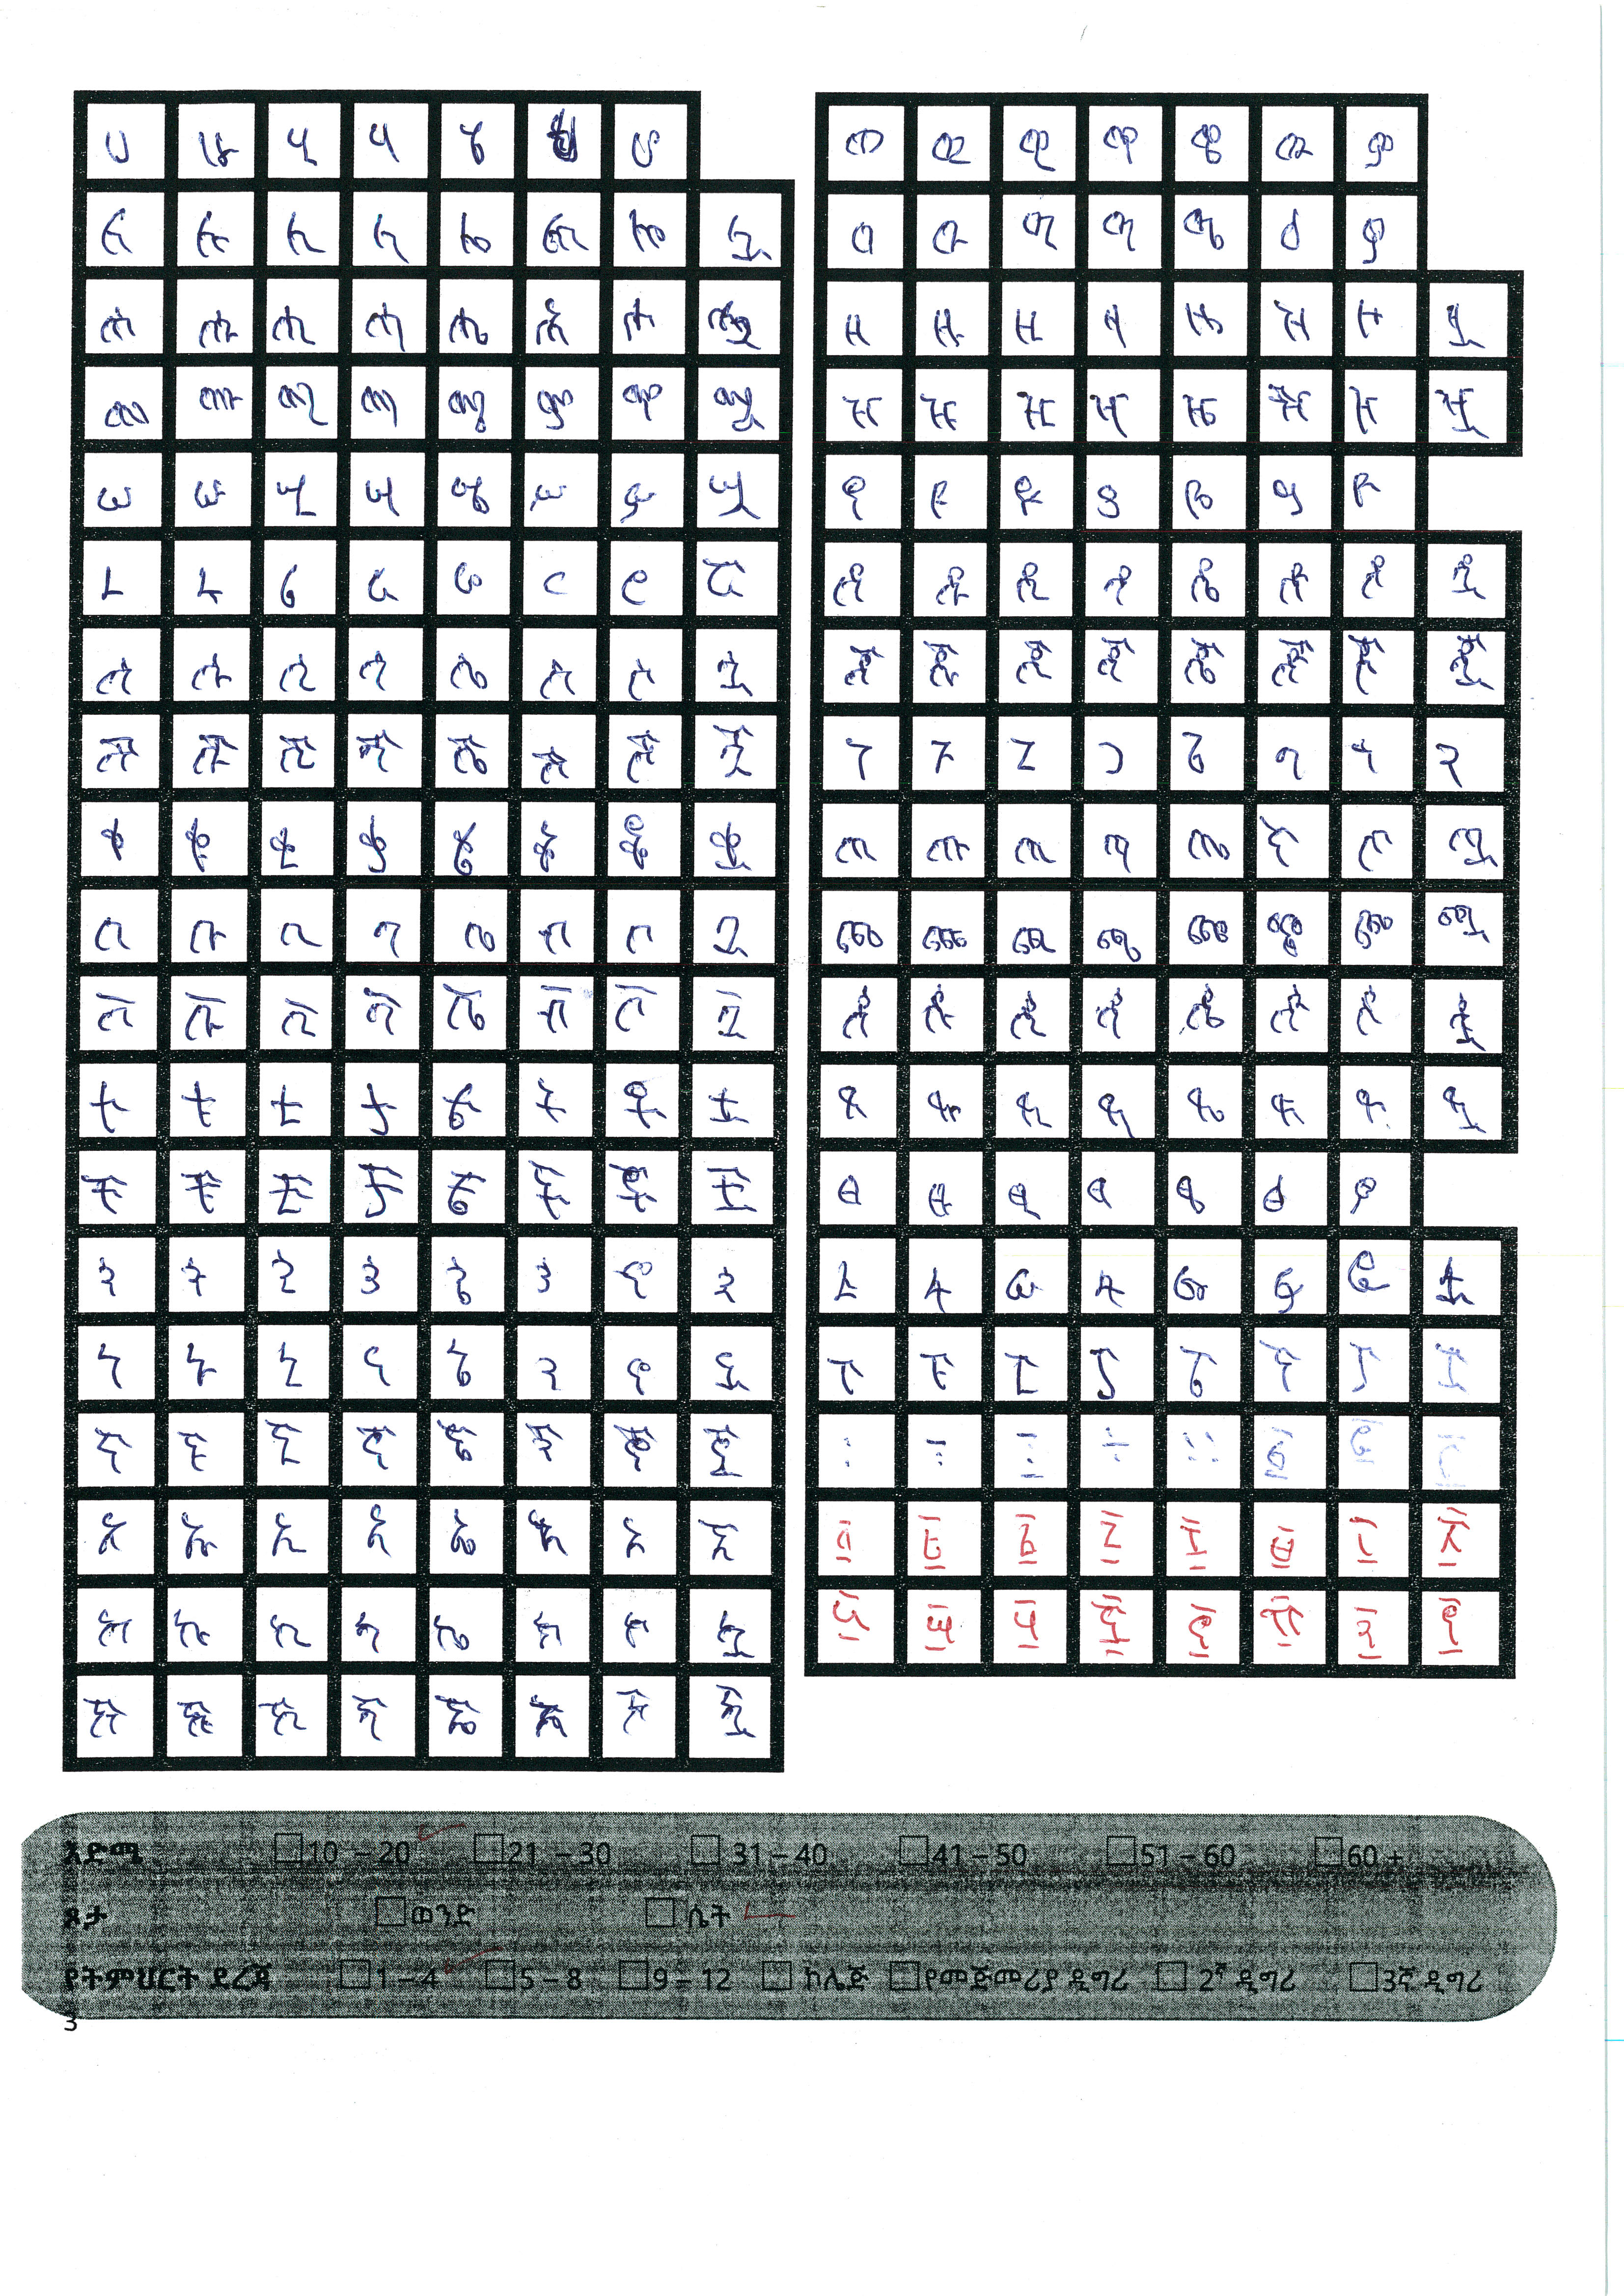 ሀ ሁ ሂ ሃ ሄ ሆ
ለ ሉ ሊ ላ ሌ ል ሎ ሏ
ሐ ሑ ሒ ሓ ሔ ሕ ሖ ሗ
መ ሙ ሚ ማ ሜ ም ሞ ሟ
ሠ ሡ ሢ ሣ ሤ ሥ ሦ ሧ
ረ ሩ ሪ ራ ሬ ር ሮ ሯ
ሰ ሱ ሲ ሳ ሴ ስ ሶ ሷ
ሸ ሹ ሺ ሻ ሼ ሽ ሾ ሿ
ቀ ቁ ቂ ቃ ቄ ቅ ቆ ቋ
በ ቡ ቢ ባ ቤ ብ ቦ ቧ
ቨ ቩ ቪ ቫ ቬ ቭ ቮ ቯ
ተ ቱ ቲ ታ ቴ ት ቶ ቷ
ቸ ቹ ቺ ቻ ቼ ች ቾ ቿ
ኀ ኁ ኂ ኃ ኄ ኅ ኆ ኋ
ነ ኑ ኒ ና ኔ ን ኖ ኗ
ኘ ኙ ኚ ኛ ኜ ኝ ኞ ኟ
አ ኡ ኢ ኣ ኤ እ ኦ ኧ
ከ ኩ ኪ ካ ኬ ክ ኮ ኳ
ኸ ኹ ኺ ኻ ኼ ኽ ኾ ዃ
ወ ዉ ዊ ዋ ዌ ው ዎ
ዐ ዑ ዒ ዓ ዔ ዕ ዖ
ዘ ዙ ዚ ዛ ዜ ዝ ዞ ዟ
ዠ ዡ ዢ ዣ ዤ ዥ ዦ ዧ
የ ዩ ዪ ያ ዬ ይ ዮ
ደ ዱ ዲ ዳ ዴ ድ ዶ ዷ
ጀ ጁ ጂ ጃ ጄ ጅ ጆ ጇ
ገ ጉ ጊ ጋ ጌ ግ ጎ ጓ
ጠ ጡ ጢ ጣ ጤ ጥ ጦ ጧ
ጨ ጩ ጪ ጫ ጬ ጭ ጮ ጯ
ጰ ጱ ጲ ጳ ጴ ጵ ጶ ጷ
ጸ ጹ ጺ ጻ ጼ ጽ ጾ ጿ
ፀ ፁ ፂ ፃ ፄ ፅ ፆ
ፈ ፉ ፊ ፋ ፌ ፍ ፎ ፏ
ፐ ፑ ፒ ፓ ፔ ፕ ፖ ፗ
፡ ፣ ፤ ÷ ። ፩ ፪ ፫
፬ ፭ ፮ ፯ ፰ ፱ ፲ ፳
፴ ፵ ፶ ፷ ፸ ፹ ፺ ፻
እድሜ 10 – 20 21 – 30 31 – 40 41 – 50 51 – 60 60 +
ጾታ ወንድ ሴት
የትምህርት ደረጃ 1 – 4 5 – 8 9 – 12 ኮሌጅ የመጀመሪያ ዲግሪ 2ኛ ዲግሪ 3ኛ ዲግሪ
3